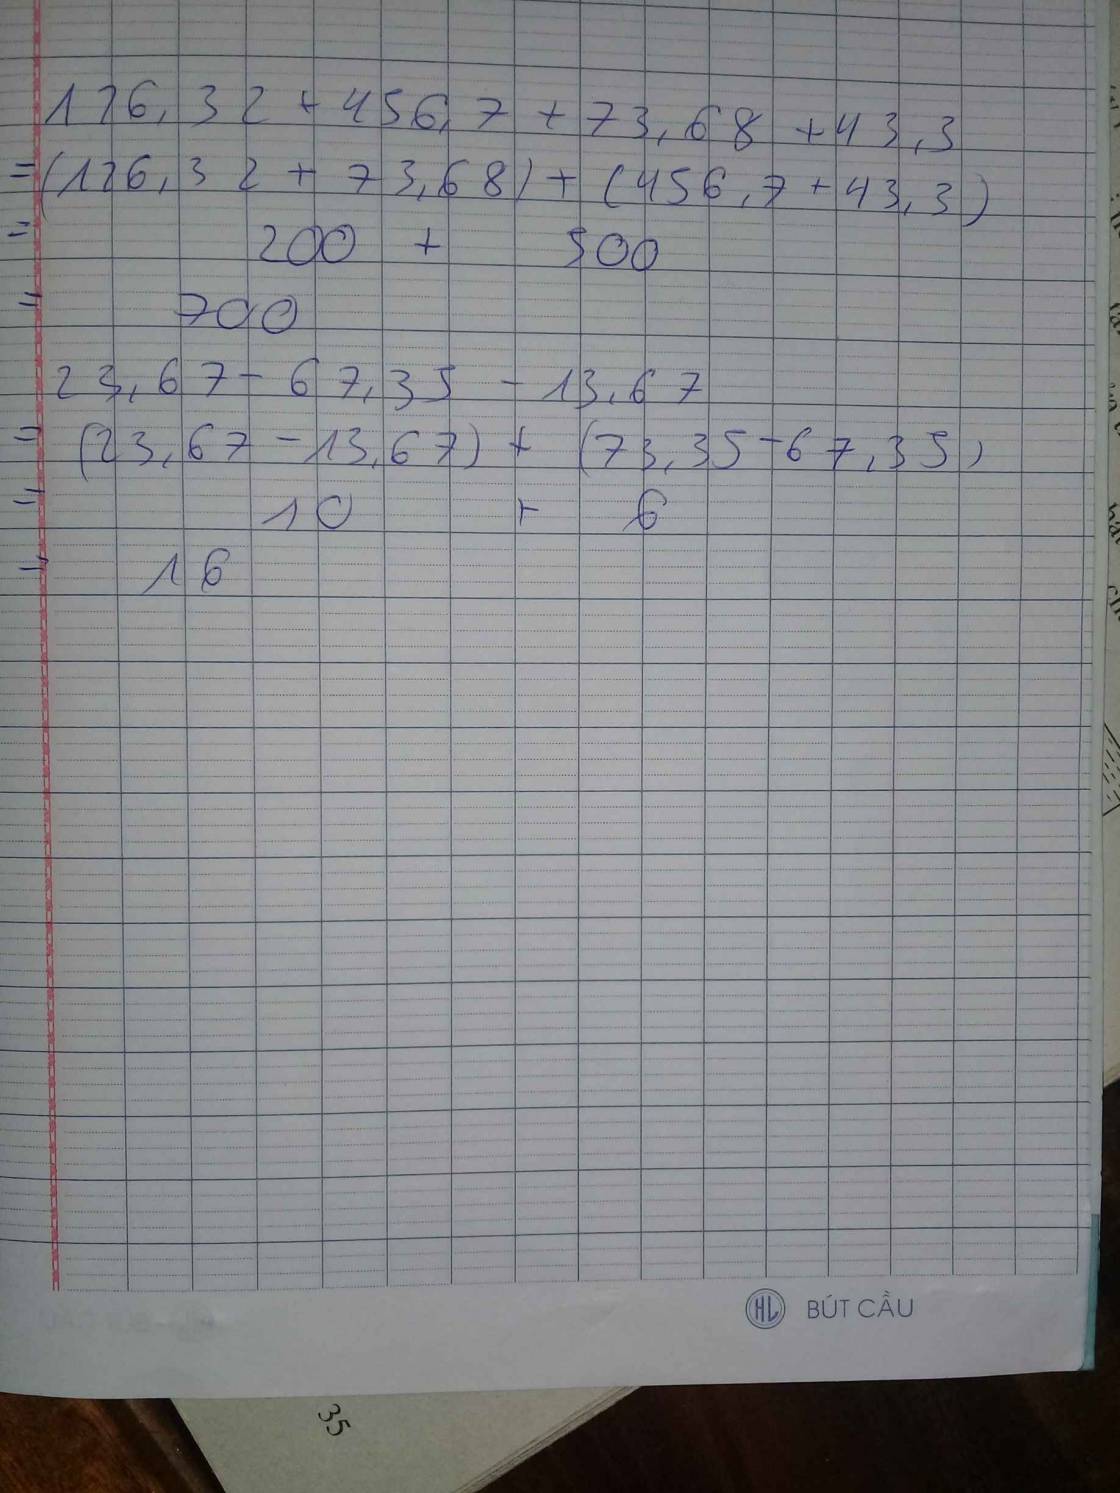 126,32 + 456,7 + 73,68 + 43,3
= (126,32 + 73,68) + (456,7 + 43,3)
= 200 + 500
= 700
23,67 - 67,35 - 13,67
= (23,67 - 13,67) + (73,35 - 67,35)
= 10 + 6
= 16
HL BÚT CẦU
35